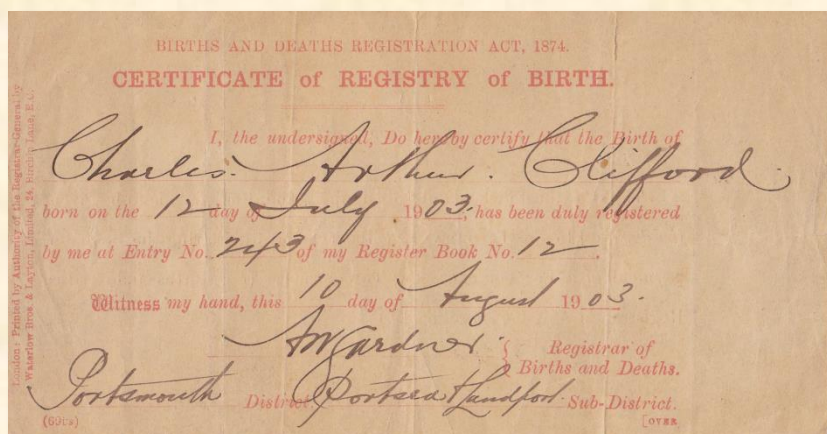 BIRTHS AND DEATHS REGISTRATION ACT, 1874.
CERTIFICATE of REGISTRY of BIRTH.
I, the undersigned, Do hereby certify that the Birth of
Charles. Arthur. Clifford.
born on the 12 day of July 1903. has been duly registered
by me at Entry No. 243 of my Register Book No. 12.
Witness my hand, this 10 day of August 1903.
AWGardner. Registrar of
Births and Deaths.
Portsmouth District Portsea & Landport. Sub-District.
[OVER
London: Printed by Authority of the Registrar-General by
Waterlow Bros. & Layton, Limited, 24, Birchin Lane, E.C.